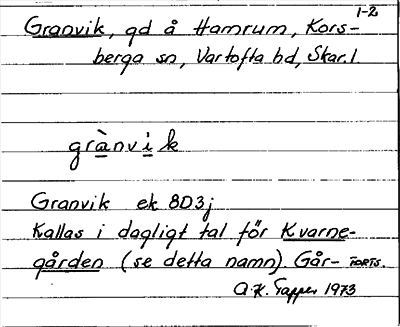 1-2
Granvik, gd å Hamrum, Kors-
berga sn, Vartofta hd, Skar. l
grànvik
Granvik ek 8D3j
Kallas i dagligt tal för Kvarne-
gården (se detta namn). Går- FORTS.
A.K. Tapper 1973